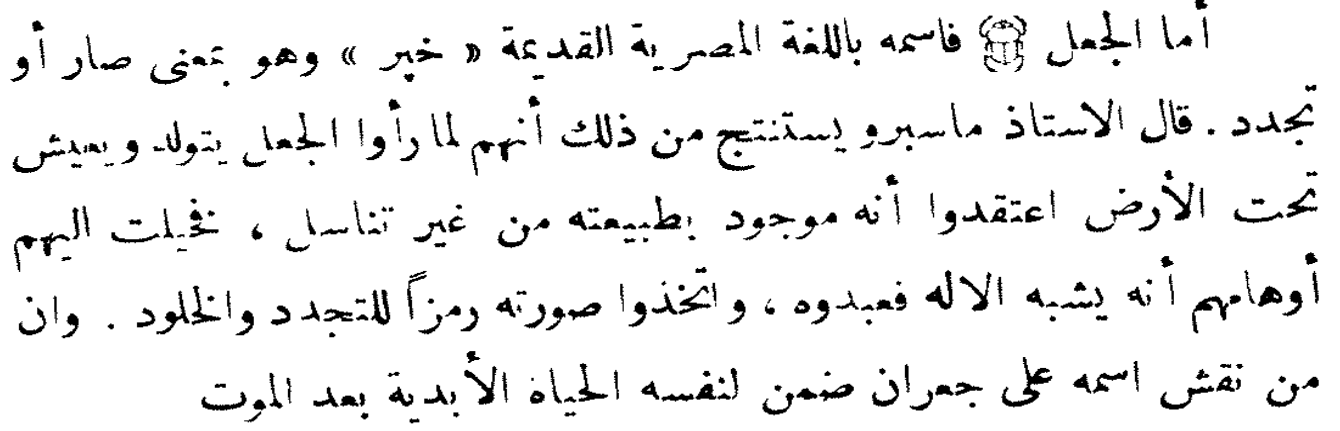 أما الجعل 𓆣 فاسمه باللغة المصرية القديمة « خپر » وهو بمعنى صار أو
تجدد . قال الاستاذ ماسبرو يستنتج من ذلك أنهم لما رأوا الجعل يتولد ويعيش
تحت الأرض اعتقدوا أنه موجود بطبيعته من غير تناسل ، فخيلت اليهم
أوهامهم أنه يشبه الاله فعبدوه ، واتخذوا صورته رمزاً للتجدد والخلود . وان
من نقش اسمه على جعران ضمن لنفسه الحياة الأبدية بعد الموت